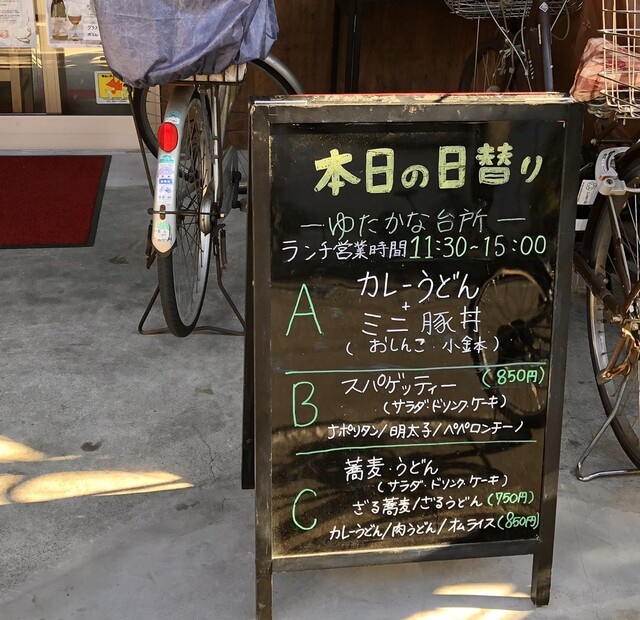 本日の日替り
ーゆたかな台所ー
ランチ営業時間11:30~15:00
A カレーうどん
+
ミニ豚丼
(おしんこ・小鉢)
B スパゲッティー (850円)
(サラダ・ドリンク・ケーキ)
ナポリタン/明太子/ペペロンチーノ
C 蕎麦・うどん
(サラダ・ドリンク・ケーキ)
ざる蕎麦/ざるうどん(750円)
カレーうどん/肉うどん/オムライス(850円)